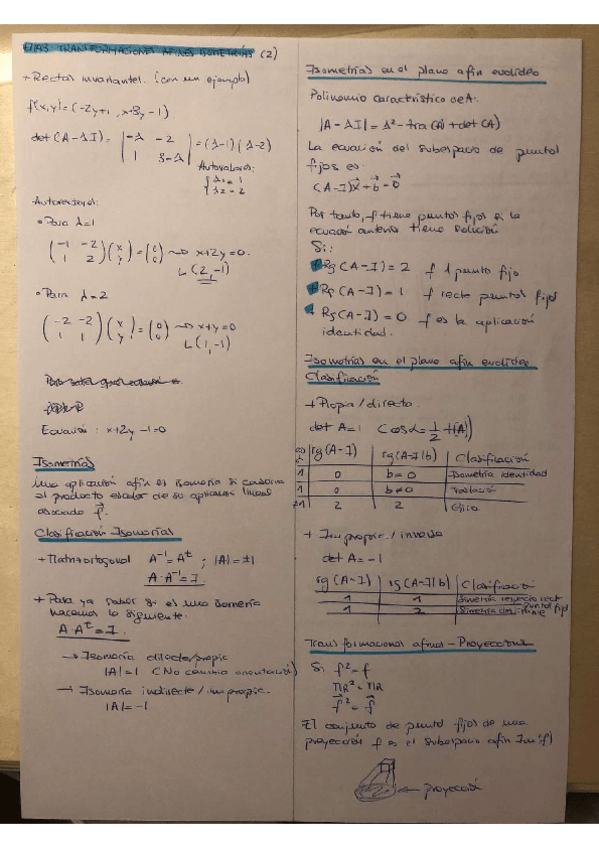 TRANSFORMACIONES AFINES ISOMETRÍAS (2)
+ Rectas invariantes. (con un ejemplo)
f(x,y) = (-2y+1, x+3y-1)
det (A-λI) = | -λ -2 | = (λ-1)(λ-2)
| 1 3-λ |
Autovalores:
{ λ1 = 1
λ2 = 2
Autovectores:
• Para λ=1
( -1 -2 ) ( x ) = ( 0 ) ⇝ x+2y=0.
( 1 2 ) ( y ) ( 0 ) L(2,-1)
• Para λ=2
( -2 -2 ) ( x ) = ( 0 ) ⇝ x+y=0
( 1 1 ) ( y ) ( 0 ) L(1,-1)
Ecuación: x+2y-1=0
Isometrías
Una aplicación afín es isometría si conserva
el producto escalar de su aplicación lineal
asociada f⃗.
Clasificación Isometrías
+ Matriz ortogonal A⁻¹ = Aᵗ ; |A| = ±1
A·A⁻¹ = I.
+ Para ya saber si es una isometría
hacemos lo siguiente.
A·Aᵗ = I.
→ Isometría directa/propia
|A|=1 (No cambia orientación)
→ Isometría indirecta/impropia.
|A|=-1
Isometrías en el plano afín euclídeo
Polinomio característico de A.
|A-λI| = λ² - tra(A) + det(A)
La ecuación del subespacio de puntos
fijos es
(A-I)x⃗ + b⃗ = 0⃗
Por tanto, f tiene puntos fijos si la
ecuación anterior tiene solución
Si:
+ Rg(A-I) = 2 f 1 punto fijo
+ Rg(A-I) = 1 f recta puntos fijos
+ Rg(A-I) = 0 f es la aplicación
identidad.
Isometrías en el plano afín euclídeo
Clasificación
+ Propia/directa.
det A=1 Cos α = 1/2 tr(A)
rg(A-I) rg(A-I|b) Clasificación
1 0 b=0 Isometría identidad
1 0 b≠0 Traslación
≠1 2 2 Giro.
+ Impropia/inversa
det A = -1
rg(A-I) rg(A-I|b) Clasificación
1 1 Simetría respecto rect
1 2 Simetría
Transformaciones afines - Proyecciones
Si f² = f
f⃗² = f⃗
El conjunto de puntos fijos de una
proyección f es el subespacio afín Im(f)
← proyección